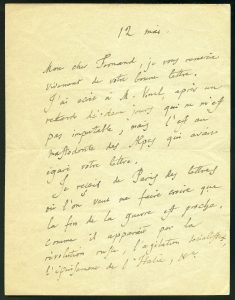 12 mai.
Mon cher Fernand, je vous remercie
vivement de votre bonne lettre.
J'ai écrit à M. après un
retard de deux jours qui ne m'est
pas imputable, mais c'est au
mastodonte des Alpes qui avait
égaré votre lettre.
Je reçois de Paris des lettres
où l'on veut me faire croire que
la fin de la guerre est proche,
comme il apparait par la
révolution russe, l'agitation
l'épuisement de l'Italie, etc.